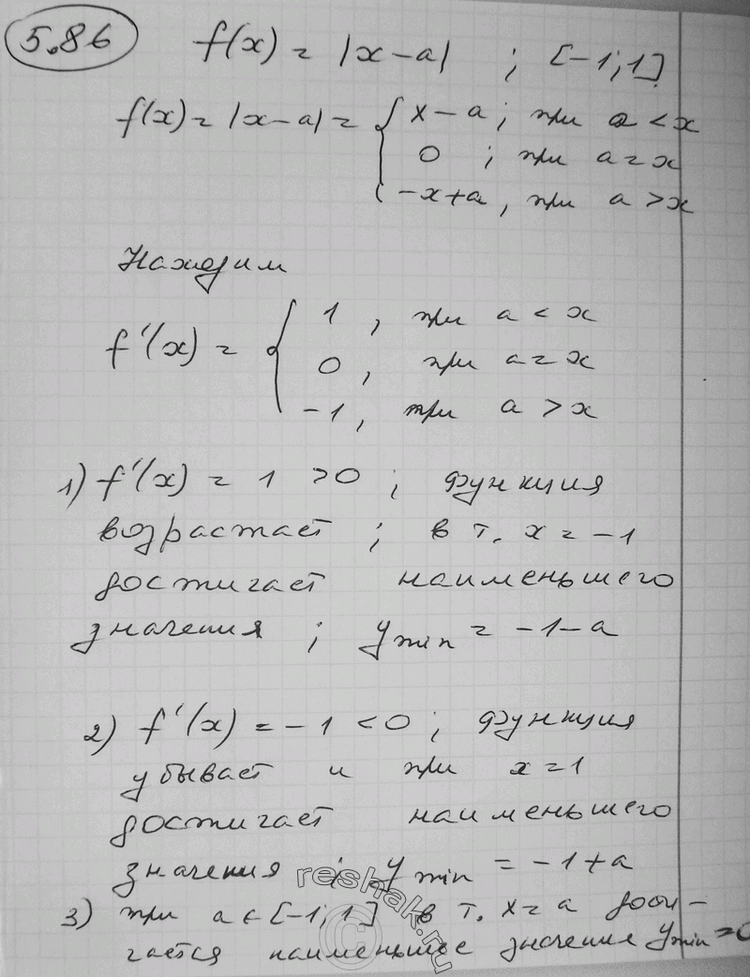 5.86 f(x) = |x-a| ; [-1;1]
f(x) = |x-a| = { x-a; при a < x
0 ; при a = x
-x+a, при a > x
Находим
f'(x) = { 1, при a < x
0, при a = x
-1, при a > x
1) f'(x) = 1 > 0 ; функция
возрастает ; в т. x = -1
достигает наименьшего
значения ; y min = -1-a
2) f'(x) = -1 < 0 ; функция
убывает и при x = 1
достигает наименьшего
значения ; y min = -1+a
3) при a ∈ [-1; 1] в т. x = a дости-
гается наименьшее значения y min = 0
reshak.ru
©